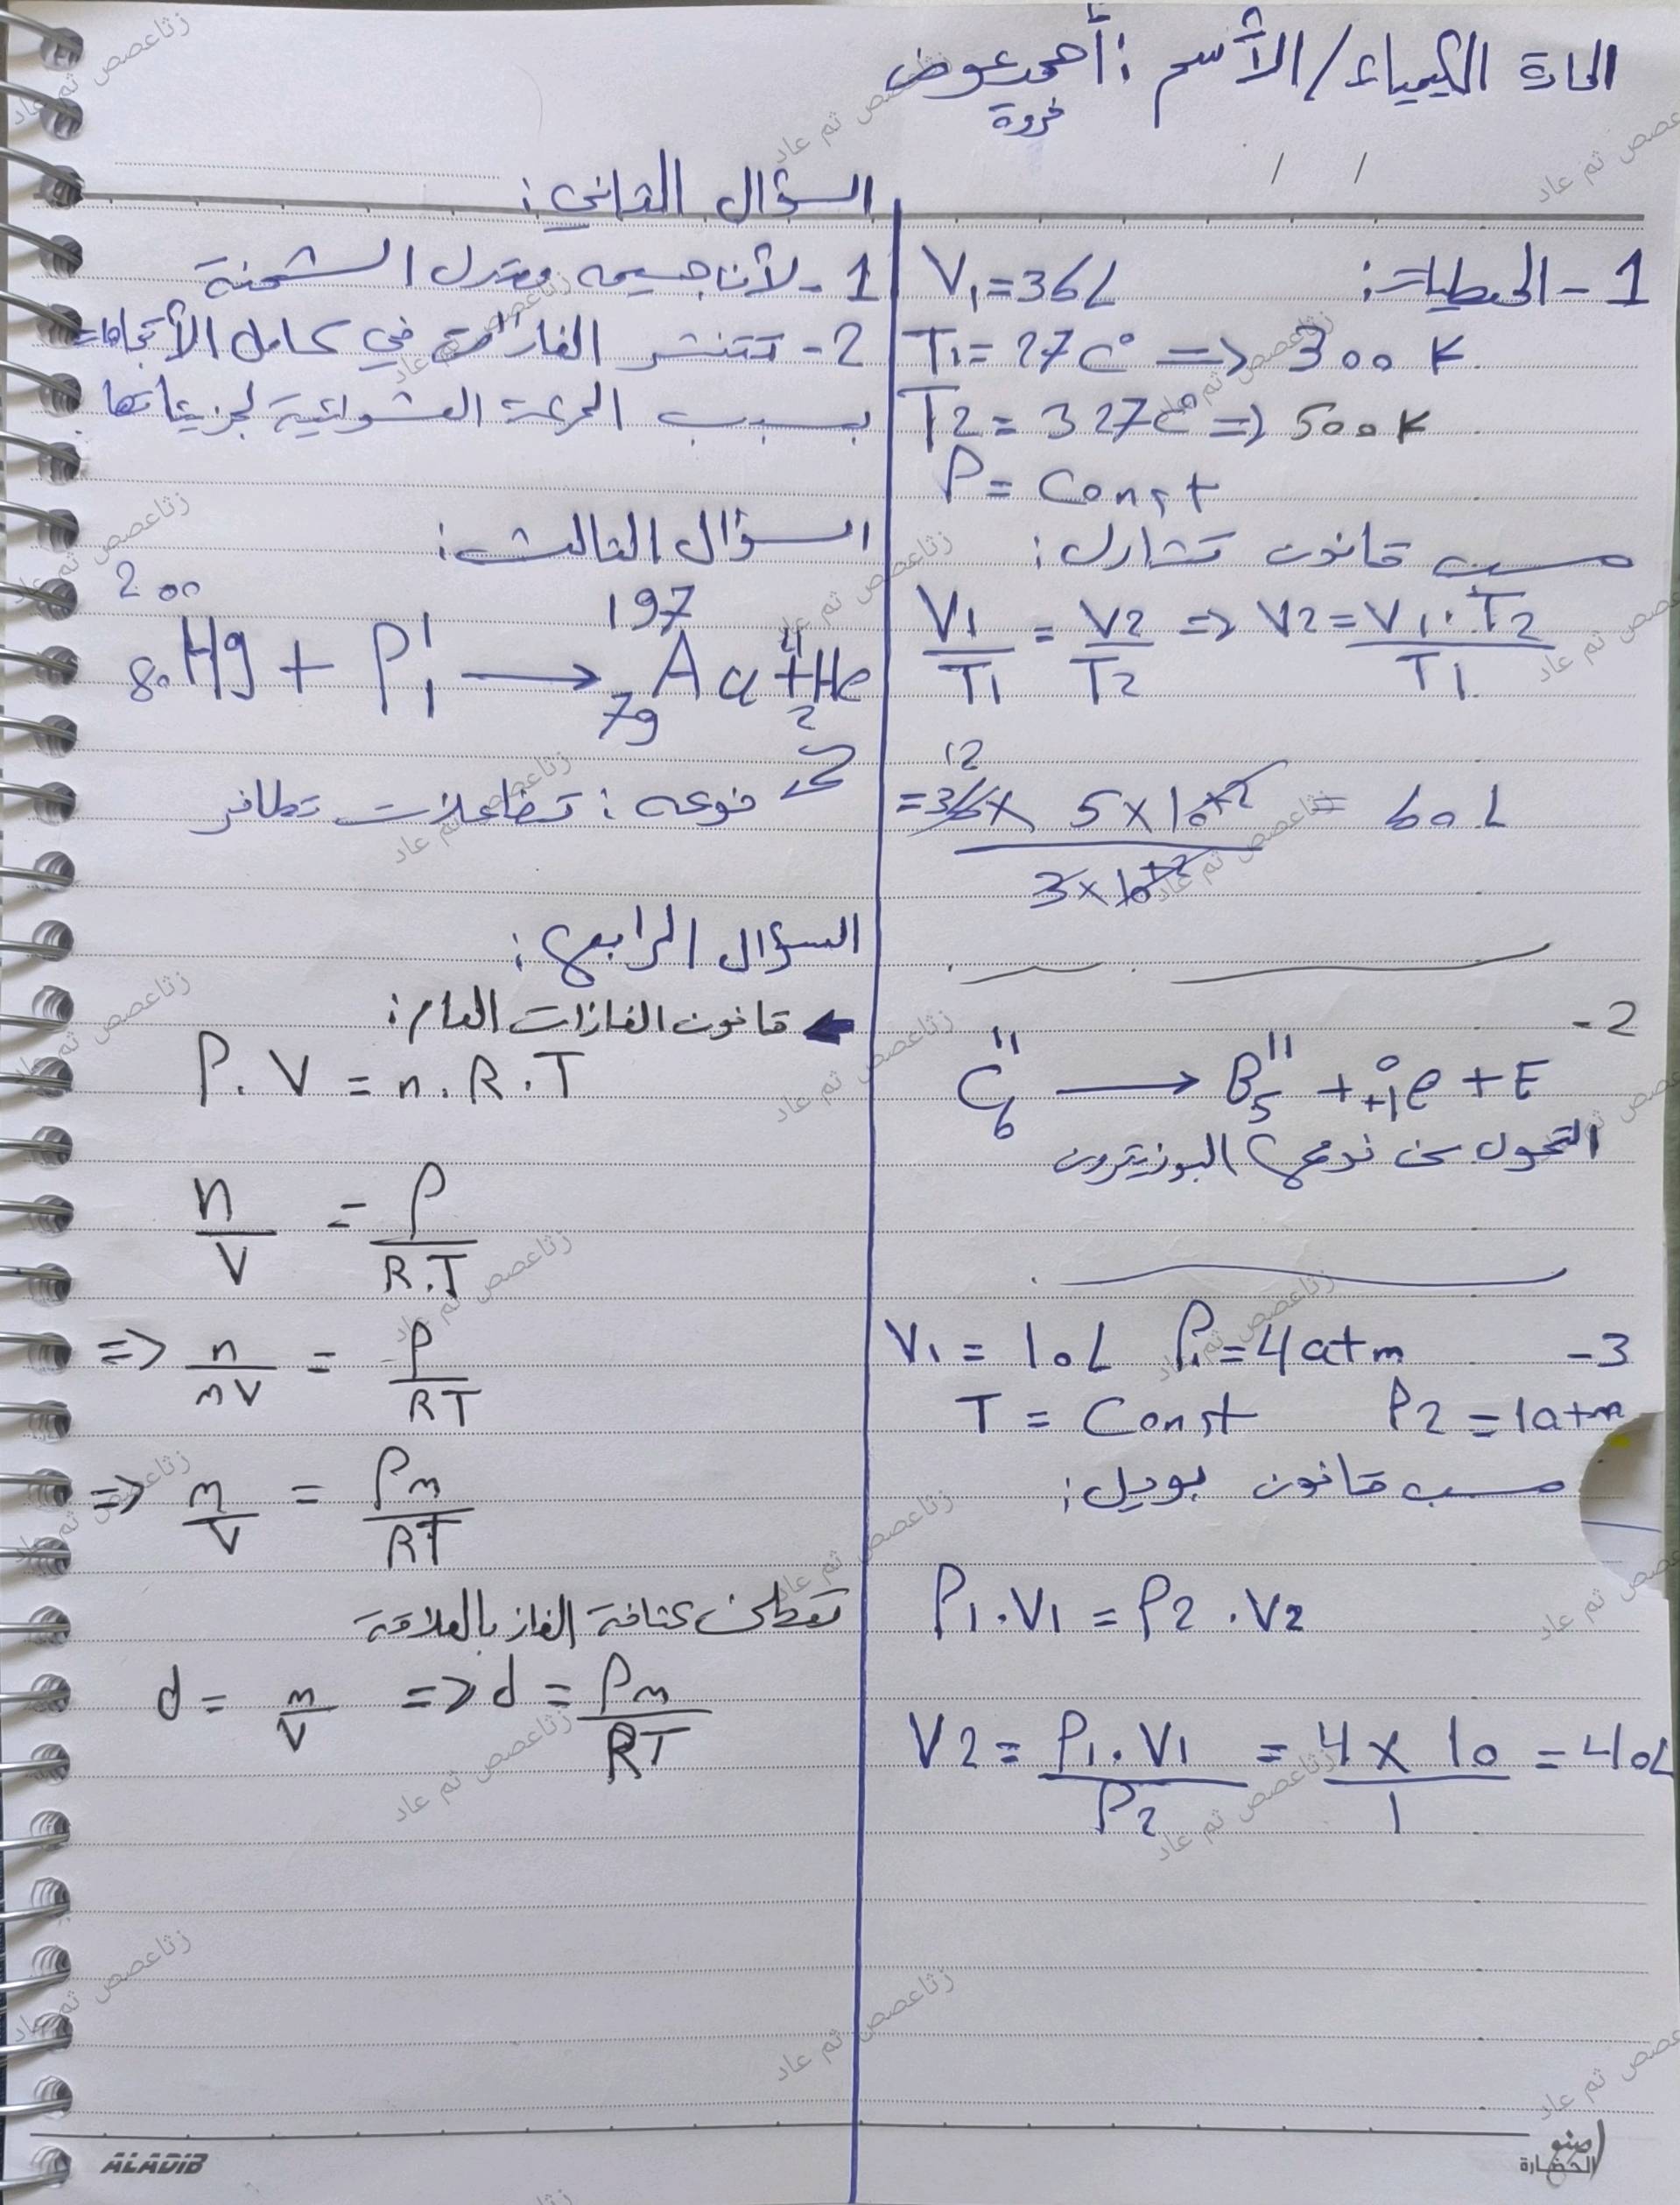 المادة الكيمياء / الأسم : أحمد عوض
فروة
1 - المعطيات :
V₁ = 36L
T₁ = 27C° => 300 K
T2 = 327C° => 500K
P = Const
حسب قانون تشارل :
V1/T1 = V2/T2 => V2 = V1 . T2/T1
= 36 12 × 5 × 10⁺² / 3 × 10⁺² = 60 L
2 -
C¹¹₆ → B¹¹₅ + ⁰₊₁e + E
التحول من نوع البوزيترون
3 -
V₁ = 10L P₁ = 4 atm
T = Const P2 = 1atm
حسب قانون بويل :
P1 . V1 = P2 . V2
V2 = P1 . V1 / P2 = 4 × 10 / 1 = 40L
السؤال الثاني :
1 - لأن جسيمه معتدل الشحنة
2 - تنتشر الغازات في كامل الأتجاهات
بسبب الحركة العشوائية لجزيئاتها
السؤال الثالث :
²⁰⁰₈₀Hg + P¹₁ → ¹⁹⁷₇₉Au + ⁴₂He
نوعه : تفاعلات تطافر
السؤال الرابع :
قانون الغازات العام :
P . V = n . R . T
n/V = P/R.T
=> m/mV = P/RT
=> m/V = Pm/RT
تعطى كثافة الغاز بالعلاقة
d = m/V => d = Pm/RT
ALADIB
زثاعصص ثم عاد